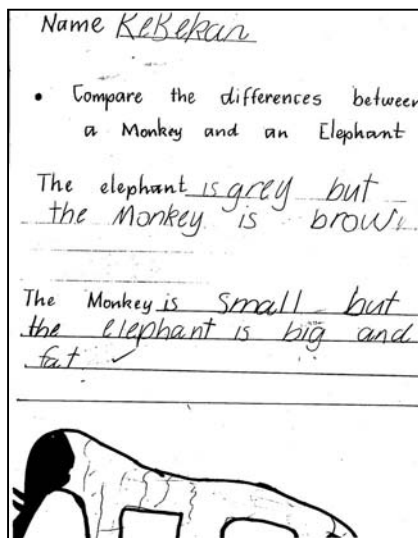 Name KeBekan
• Compare the differences between
a Monkey and an Elephant
The elephant is grey but
the Monkey is brown
The Monkey is small but
the elephant is big and
fat ✓